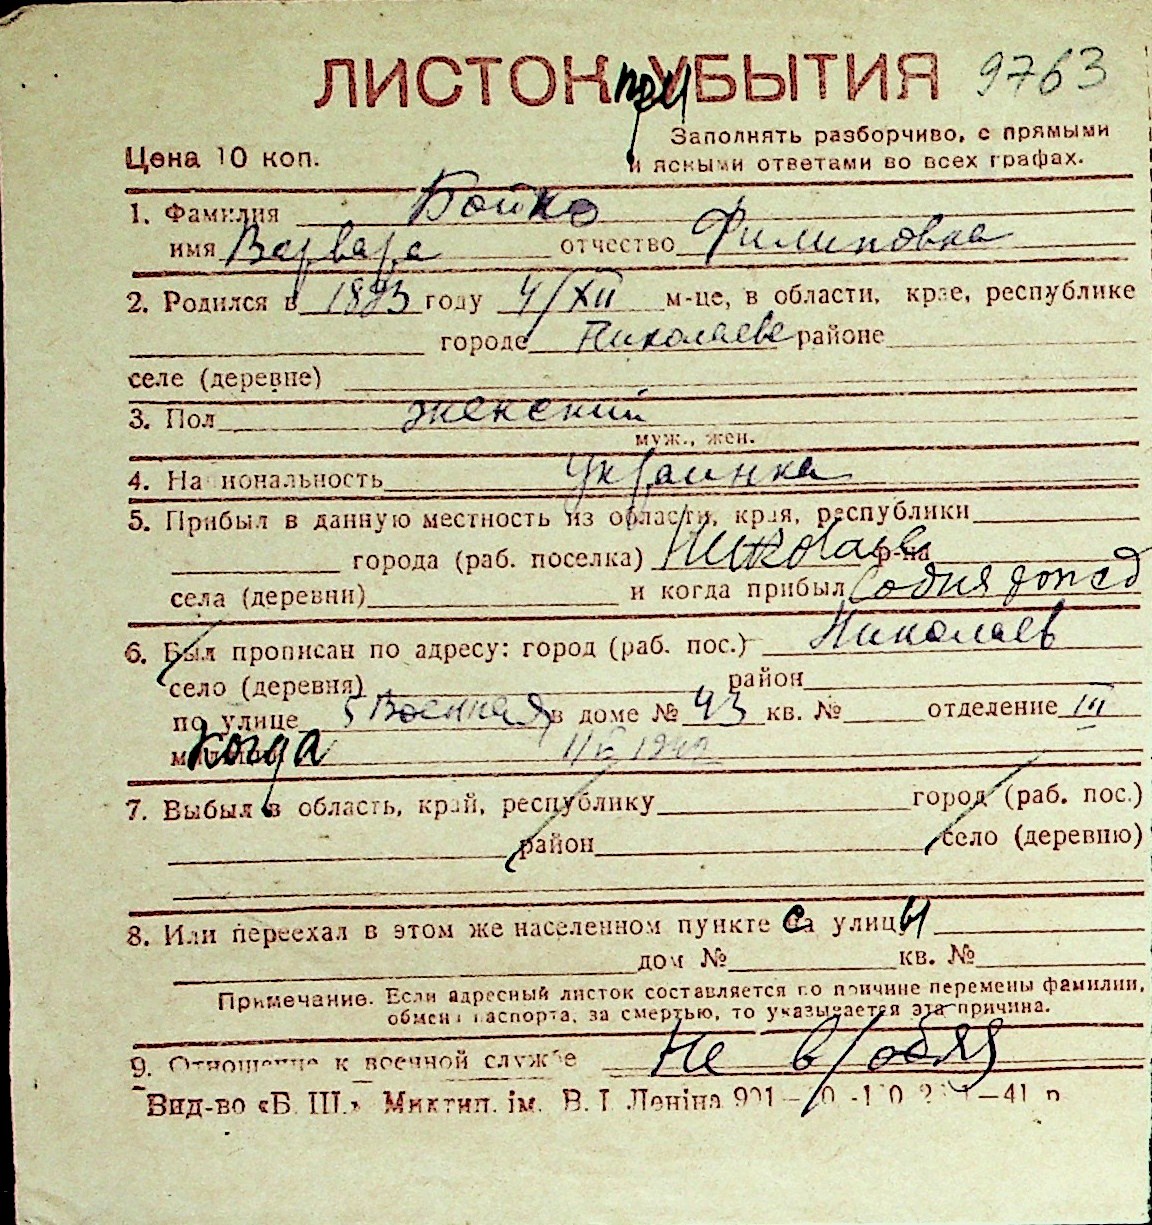 ЛИСТОК при УБЫТИЯ 9763
Заполнять разборчиво, с прямыми
Цена 10 коп. и ясными ответами во всех графах.
1. Фамилия Бойко
имя Варвара отчество Филиповна
2. Родился в 1893 году 4/XII м-це, в области, крае, республике
городе Николаеве районе
селе (деревне)
3. Пол женский
муж., жен.
4. Национальность Украинка
5. Прибыл в данную местность из области, края, республики
города (раб. поселка) Николаев р-на
села (деревни) и когда прибыл
6. Был прописан по адресу: город (раб. пос.) Николаев
село (деревня) район
по улице 5 Военная в доме № 43 кв. № отделение III
милиции когда
7. Выбыл в область, край, республику город (раб. пос.)
район село (деревню)
8. Или переехал в этом же населенном пункте с улицы
дом № кв. №
Примечание. Если адресный листок составляется по причине перемены фамилии,
обмена паспорта, за смертью, то указывается эта причина.
9. Отношение к военной службе Не в/обяз
Вид-во «Б. Ш.» Миктип. ім. В. І. Леніна